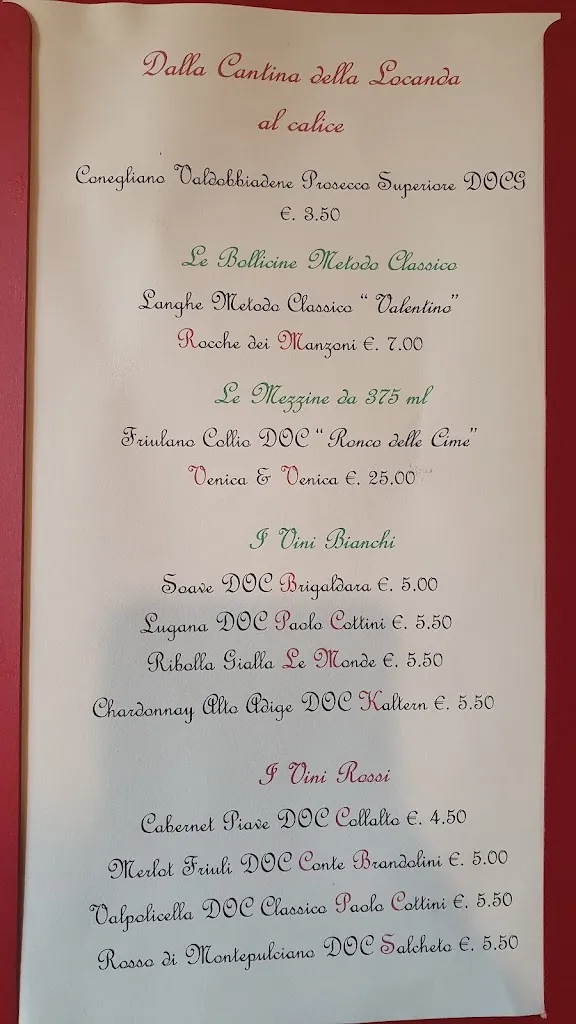 Dalla Cantina della Locanda
al calice
Conegliano Valdobbiadene Prosecco Superiore DOCG
€. 3.50
Le Bollicine Metodo Classico
Langhe Metodo Classico “ Valentino”
Rocche dei Manzoni €. 7.00
Le Mezzine da 375 ml
Friulano Collio DOC “ Ronco delle Cime”
Venica & Venica €. 25.00
I Vini Bianchi
Soave DOC Brigaldara €. 5.00
Lugana DOC Paolo Cottini €. 5.50
Ribolla Gialla Le Monde €. 5.50
Chardonnay Alto Adige DOC Kaltern €. 5.50
I Vini Rossi
Cabernet Piave DOC Collalto €. 4.50
Merlot Friuli DOC Conte Brandolini €. 5.00
Valpolicella DOC Classico Paolo Cottini €. 5.50
Rosso di Montepulciano DOC Salcheto €. 5.50